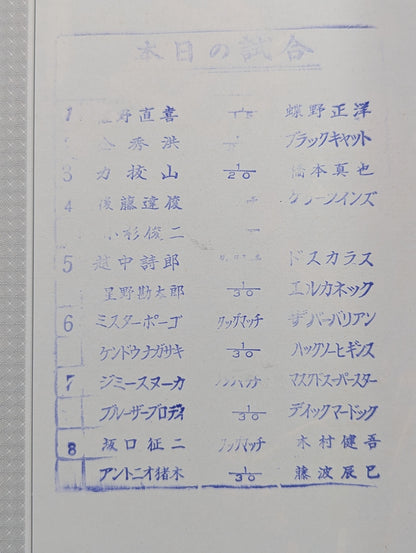 本日の試合
1 野直喜 1/15 蝶野正洋
秀洪 ブラックキャット
3 力抜山 1/20 橋本真也
4 後藤達俊
小杉俊二
5 越中詩郎 ドスカラス
星野勘太郎 1/30 エルカネック
6 ミスターポーゴ タッグマッチ ザバーバリアン
ケンドウナガサキ 1/30 ハックソーヒギンス
7 ジミースヌーカ マスクドスーパースター
ブルーザーブロディ 1/30 ディックマードック
8 坂口征二 タッグマッチ 木村健吾
アントニオ猪木 1/30 藤波辰巳